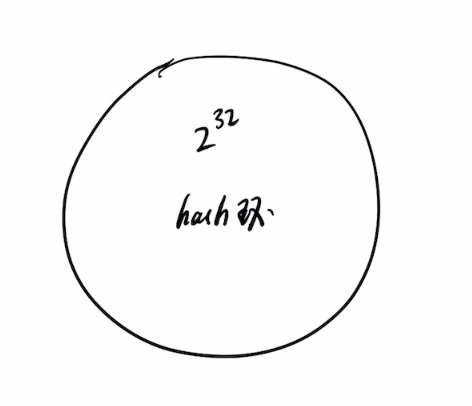 2^32
hash环